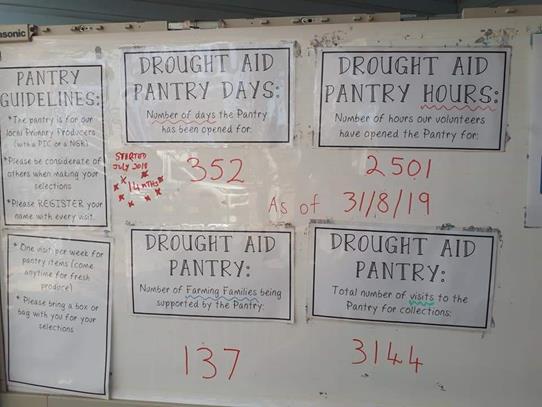 asonic
PANTRY
GUIDELINES:
*The pantry is for our
local Primary Producers
(with a PIC or a NGR)
*Please be considerate of
others when making your
selections
*Please REGISTER your
name with every visit.
* One visit per week for
pantry items (come
anytime for fresh
produce)
* Please bring a box or
bag with you for your
selections
DROUGHT AID
PANTRY DAYS:
Number of days the Pantry
has been opened for:
STARTED
JULY 2018
14 MTHS
352
DROUGHT AID
PANTRY HOURS:
Number of hours our volunteers
have opened the Pantry for:
2501
As of 31/8/19
DROUGHT AID
PANTRY:
Number of Farming Families being
supported by the Pantry:
137
DROUGHT AID
PANTRY:
Total number of visits to the
Pantry for collections:
3144